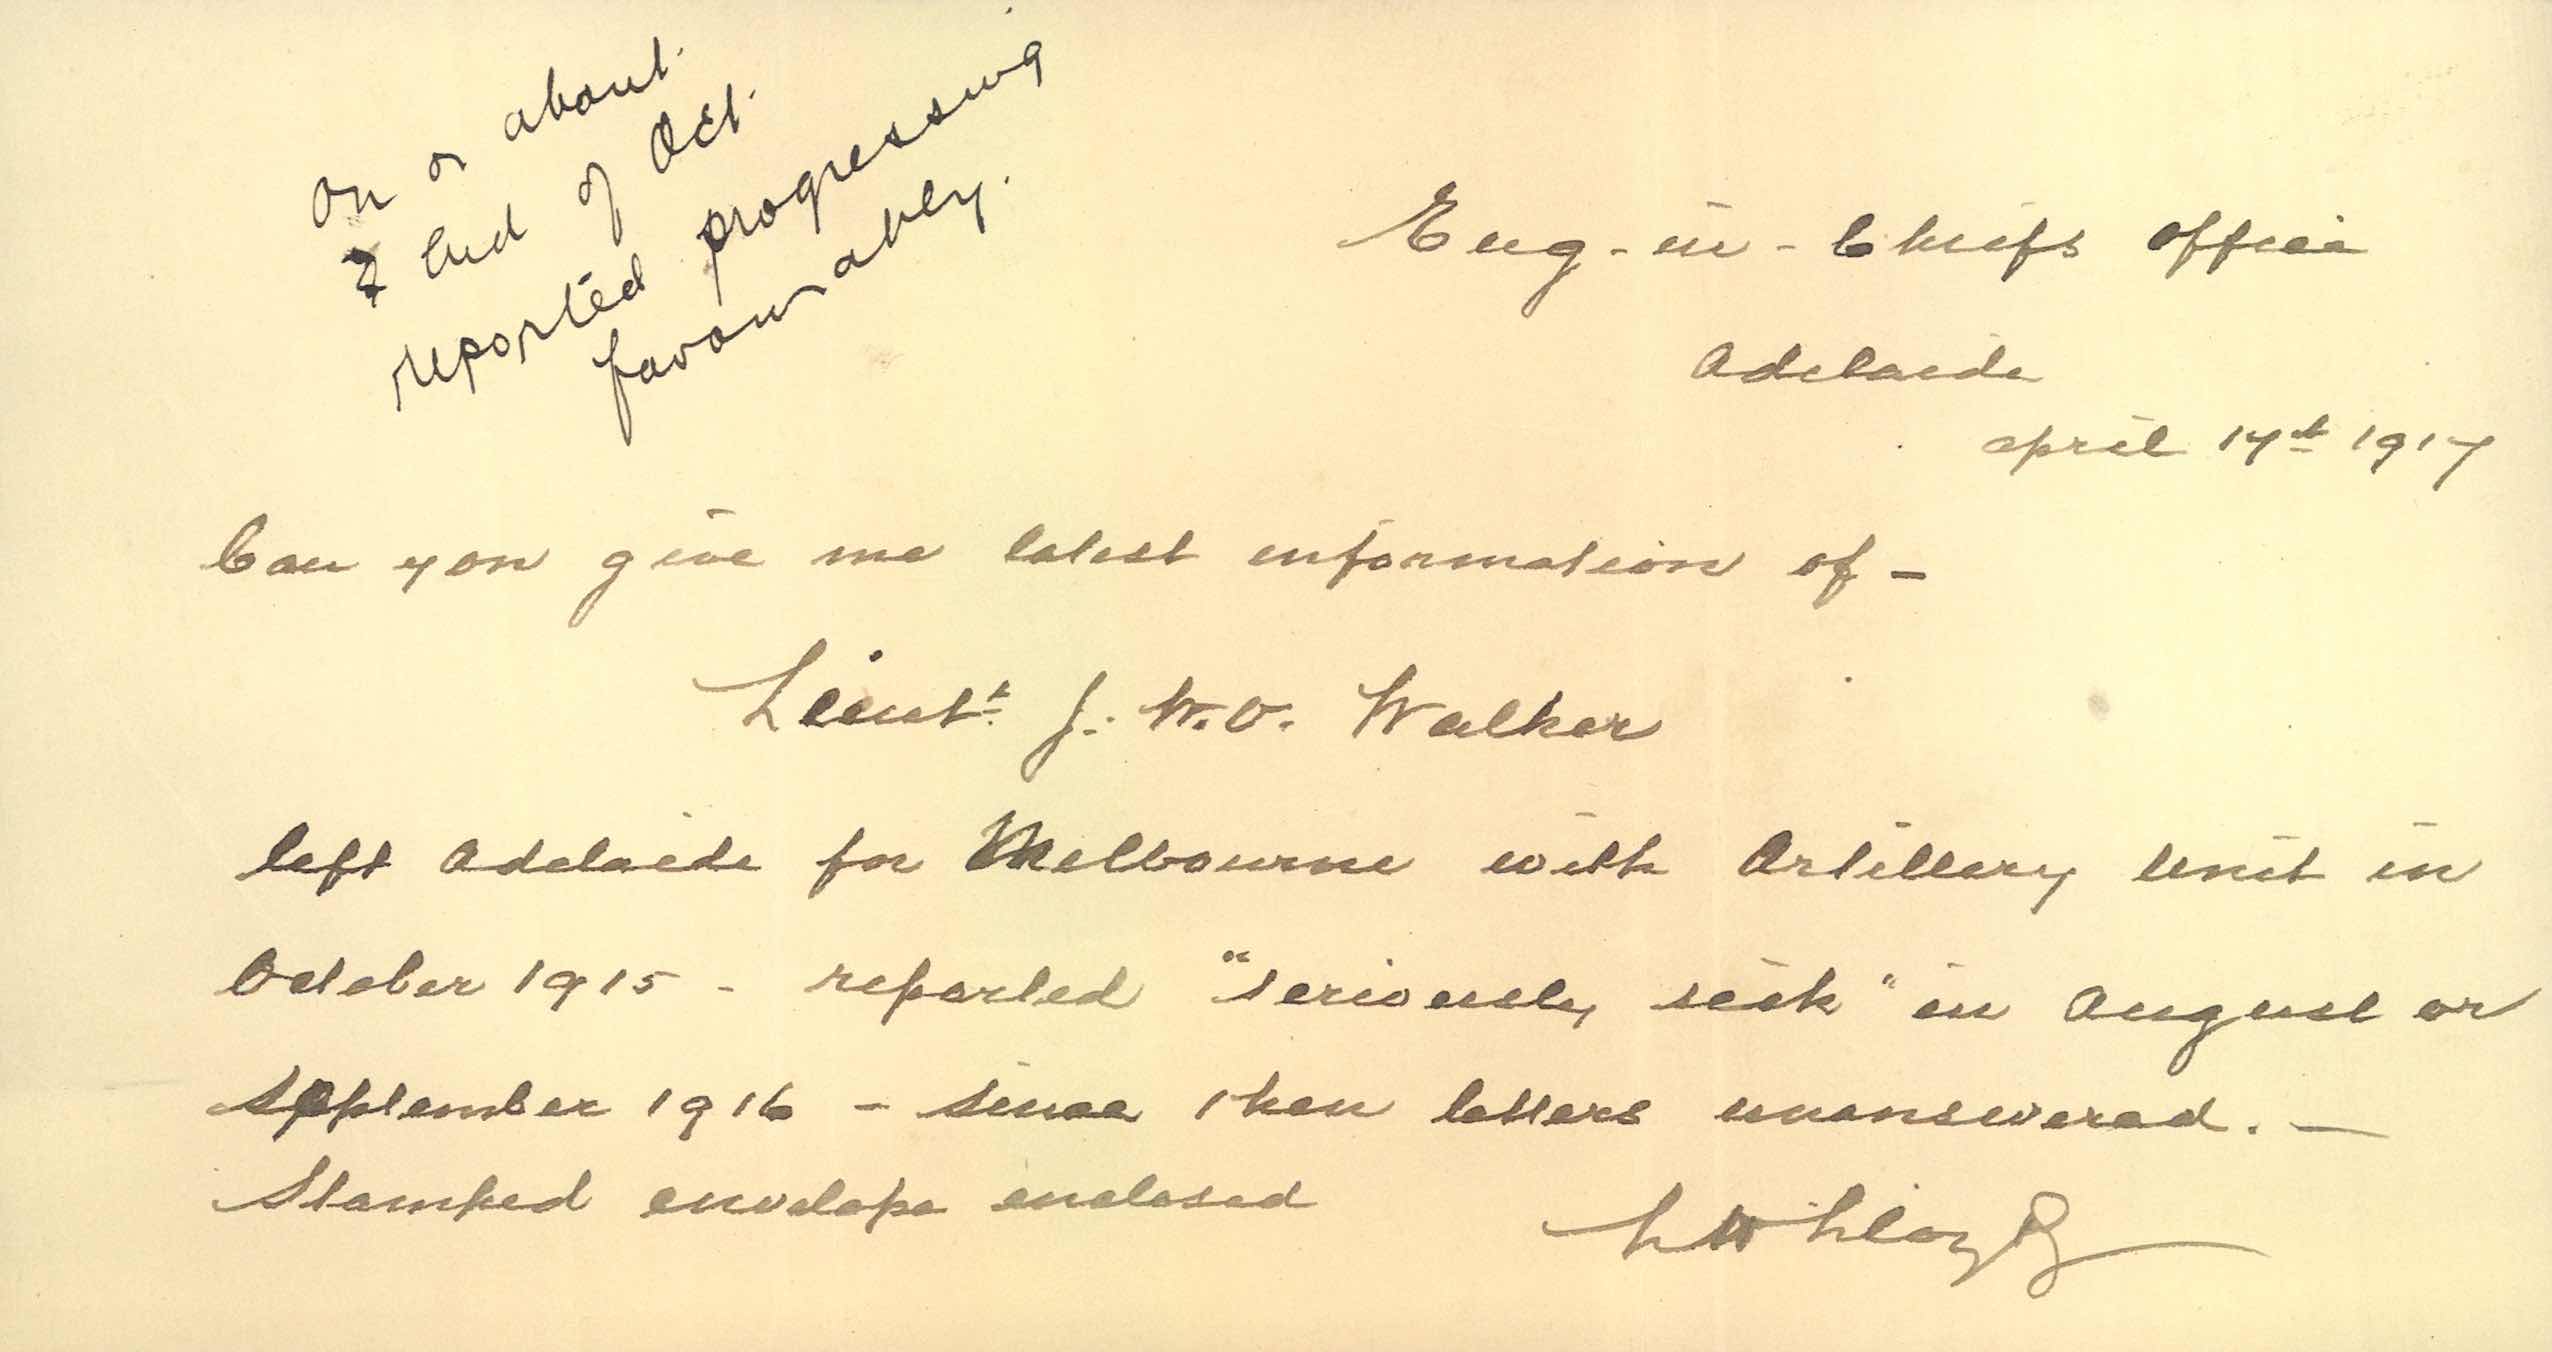 on or about
2nd of Oct.
reported progressing
favourably.
Eng-in-Chiefs Office
Adelaide
April 17th 1917
Can you give me latest information of -
Lieut. J. W. O. Walker
left Adelaide for Melbourne with Artillery Unit in
October 1915 - reported "seriously sick" in August or
September 1916 - since then letters unanswered. -
Stamped envelope enclosed
L W Lloyd